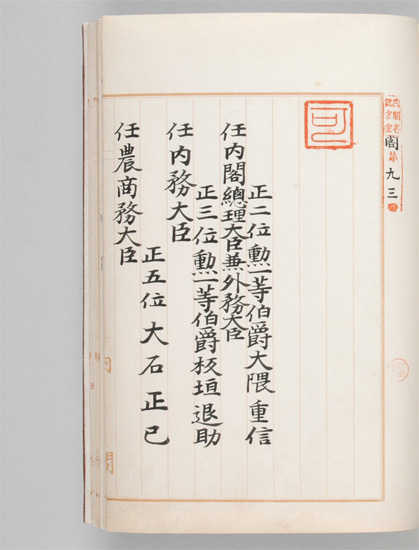 内閣書記官室
閣第九三
可
正二位勲一等伯爵大隈重信
任内閣總理大臣兼外務大臣
正三位勲一等伯爵板垣退助
任内務大臣
正五位大石正巳
任農商務大臣
内閣